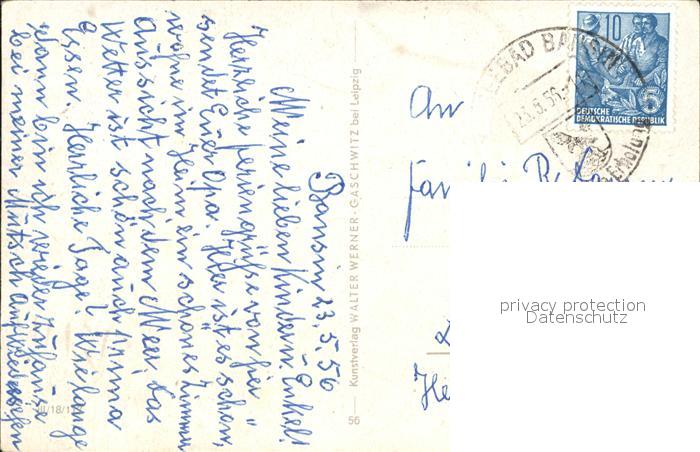 Bansin 23.5.56
Meine lieben Kinder u. Enkel!
Herrliche Feriengrüße von hier
sendet Euer Opa. Hier ist es schön,
wohne im Heim ein schönes Zimmer
Aussicht nach dem Meer. Das
Wetter ist schön auch prima
Essen. Herrliche Tage! Wie lange
dann bin ich wieder zuhause
bei meiner Mutsch auf wiedersehen
VII/18/1
Kunstverlag WALTER WERNER · GASCHWITZ bei Leipzig
56
An
10
DEUTSCHE
DEMOKRATISCHE REPUBLIK
5
SEEBAD BANSIN
23.5.56
privacy protection
Datenschutz